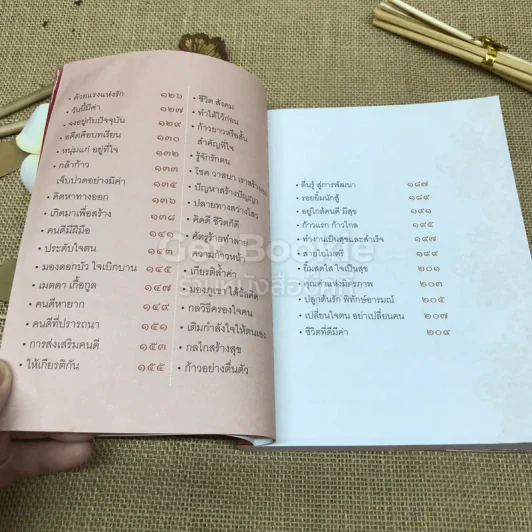 • ด้วยแรงแห่งรัก ๑๒๖
• วันนี้มีค่า ๑๒๗
• จงอยู่กับปัจจุบัน ๑๒๙
• อดีตคือบทเรียน ๑๓๐
• หนุ่มแก่ อยู่ที่ใจ ๑๓๒
• กล้าก้าว ๑๓๓
เจ็บปวดอย่างมีค่า ๑๓๕
• คิดหาทางออก ๑๓๖
• เกิดมาเพื่อสร้าง ๑๓๘
• คนดีมีฝีมือ
• ประดับใจตน
• มองดอกบัว ใจเบิกบาน ๑๔๕
• เมตตา เกื้อกูล ๑๔๗
• คนดีหายาก ๑๔๙
• คนดีที่ปรารถนา ๑๕๑
• การส่งเสริมคนดี ๑๕๓
• ให้เกียรติกัน ๑๕๕
• ชีวิต สังคม
• ทำได้ไว้ก่อน
• ก้าวยาวหรือสั้น
สำคัญที่ใจ
• รู้จักรักตน
• โชค วาสนา เราสร้างเอง
• ปัญหาสร้างปัญญา
• ปลายทางสว่างไสว
• คิดดี ชีวิตก็ดี
• ศัตรูร้ายทำลาย
ความก้าวหน้า
• เกียรติล้ำค่า
• มองภูเขา
• กลวิธีครองใจคน
• เติมกำลังใจให้ตนเอง
• กลไกสร้างสุข
• ก้าวอย่างตื่นตัว
• ตื่นรู้ สู่การพัฒนา ๑๘๗
• รอยยิ้มนักสู้ ๑๘๙
• อยู่ใกล้คนดี มีสุข ๑๙๑
• ก้าวแรก ก้าวไกล ๑๙๕
• ทำงานเป็นสุขและสำเร็จ ๑๙๗
• สายใยไมตรี ๑๙๙
• ยิ้มสดใส ใจเป็นสุข ๒๐๑
• คุณค่าแห่งมิตรภาพ ๒๐๓
• ปลูกต้นรัก พิทักษ์อารมณ์ ๒๐๕
• เปลี่ยนใจตน อย่าเปลี่ยนคน ๒๐๗
• ชีวิตที่ดีมีค่า ๒๐๙